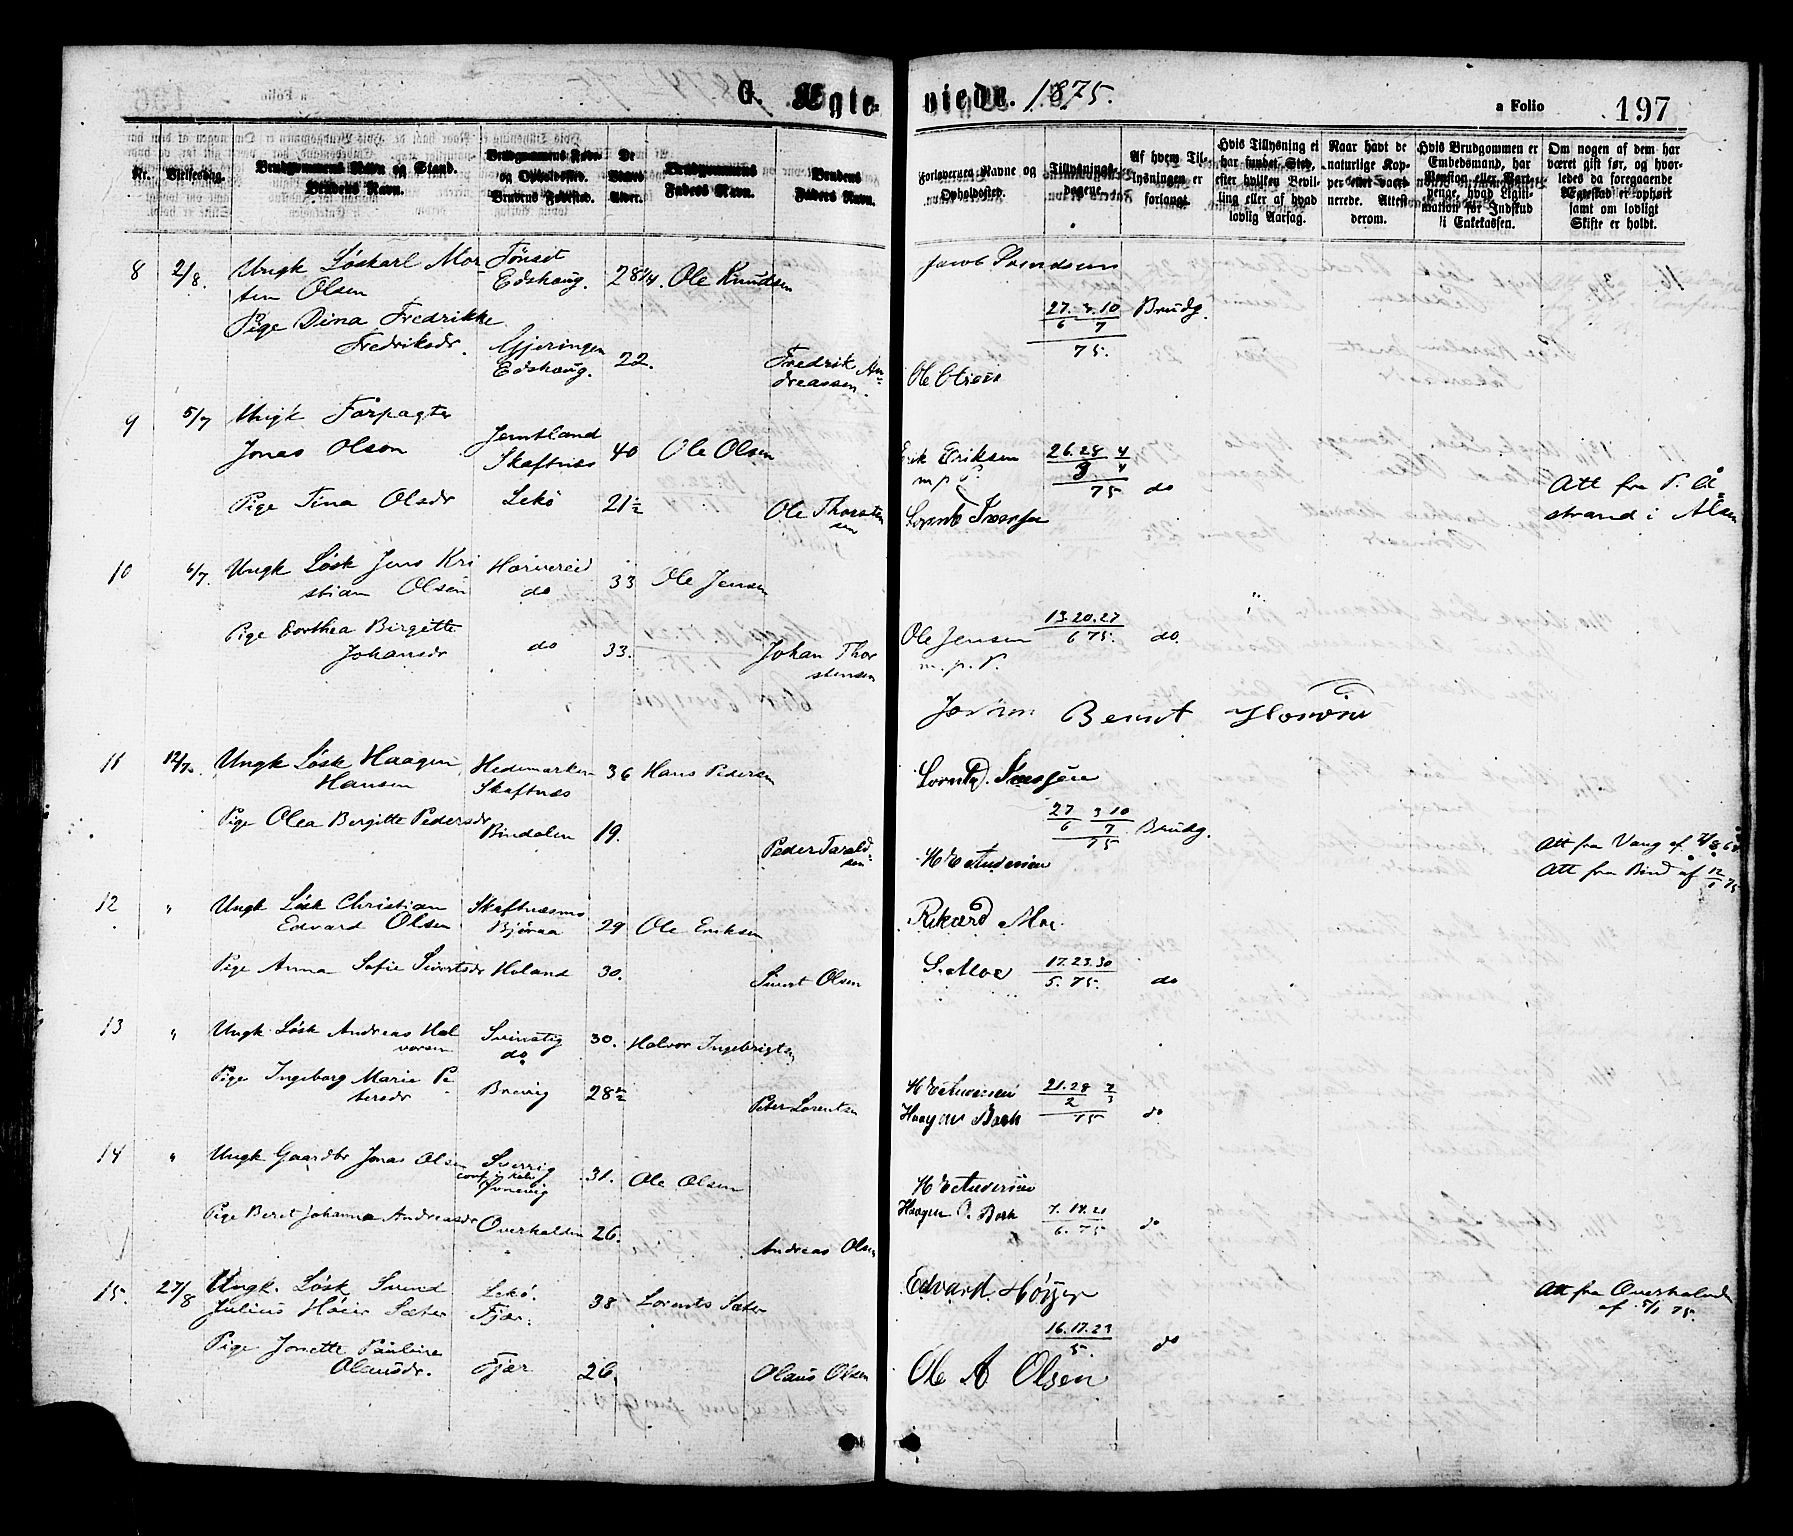 G. Ægte-
viede. 1875.
a Folio 197
Nr.
Vielsesdag.
Brudgommens Navn og Stand.
Brudens Navn.
Brudgommens Føde-
og Opholdssted.
Brudens Fødested.
De
Viedes
Alder.
Brudgommens
Faders Navn.
Brudens
Faders Navn.
Forlovernes Navne og
Opholdssted.
Tillysnings-
dagene.
Af hvem Til-
lysningen er
forlangt.
Hvis Tillysning ei
har fundet Sted,
efter hvilken Bevil-
ling eller af hvad
lovlig Aarsag.
Naar havt de
naturlige Kop-
per eller vacci-
nerede. Attest
derom.
Hvis Brudgommen er
Embedsmand, har
Pension eller Var-
penge, hvad Legiti-
mation for Indskud
i Enkekassen.
Om nogen af dem har
været gift før, og hvor-
ledes da foregaaende
Ægteskab er ophørt
samt om lovligt
Skifte er holdt.
8 2/8. Ungk Løskarl Mor
ten Olsen
Tönset
Edshaug. 28 1/4. Ole Knudsen
Pige Dina Fredrikke
Fredriksdr.
Gjeringen
Edshaug. 22.
Fredrik An-
dreassen
Jacob Svendsen
27. 3. 10 Brudg.
6 7
75.
9 5/7 Ungk Forpagter
Jonas Olson
Jemtland
Skaftnæs 40 Ole Olsen
Pige Tina Olsdr Lekö 21 1/2 Ole Thorsten
sen
Erik Eriksen
m p P
26. 28 4
3 4
75 do
Att fra P. Å-
strand i Alsen
10 6/7. Ungk Løsk Jens Kri
stian Olsen
Horvereid
do 33 Ole Jensen
Pige Dorthea Birgitte
Johansdr
do 33. Johan Thor
stensen
Ole Jensen
m. p. P.
13. 20. 27
6 75. do.
Bernt
11 12/7. Ungk Løsk Haagen
Hansen
Hedemarken
Skaftnæs
36 Hans Pedersen
Pige Olea Bergitte Pedersdr
Bindalen 19.
Peder Tarald-
sen
27 3 10
6 7
75 Brudg.
H E Andersen
Att fra Vang af
Att fra Bind af 12/1 75
12 " Ungk Løsk Christian
Edvard Olsen
Skaftnæsmo
Björaa 29 Ole Eriksen
Pige Anna Sofie Sivertsdr Höland 30. Sivert Olsen
Rikard Moe
S. Moe 17. 23. 30
5. 75. do
13 " Ungk Løsk Andreas Hal
vorsen
Svinstig
do 30. Halvor Ingebrigtsen
Pige Ingeborg Marie Pe
tersdr
Brevig 28 1/2
Peter Lorentsen
H E Andersen
21. 28 7
2 3
75
do
14 " Ungk Gaardbr Jonas Olsen Sverrig
31. Ole Olsen
Pige Beret Johanna Andreasdr Overhalden 26.
Andreas Olsen
H E Andersen
Haagen P. Bork 7. 14. 21
6. 75 do
15. 27/8 Ungk. Løsk Svend
Julius Höier Sæter
Lekö.
Fjær. 38 Lorents Sæter
Pige Jonette Pauline
Olausdr. Fjær 26. Olaus Olsen
Edvard Höyer
16. 17. 23
5. do
Ole A Olsen
Att fra Overhalden
af 5/1 75.